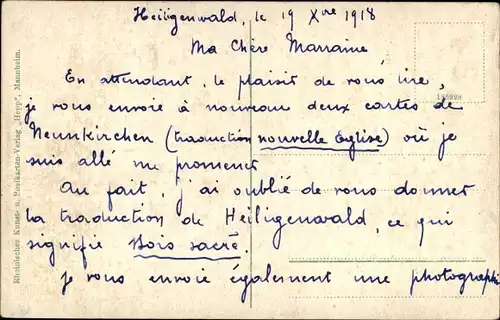 Heiligenwald, le 19 Xbre 1918
Ma Chère Marraine
En attendant, le plaisir de vous lire,
je vous envoie à nouveau deux cartes de
Neunkirchen (traduction nouvelle Eglise) où je
suis allé me promener
Au fait, j'ai oublié de vous donner
la traduction de Heiligenwald, ce qui
signifie Bois sacré.
je vous envoie également une photographie
Rheinischer Kunst- u. Postkarten-Verlag „Hepp“, Mannheim.